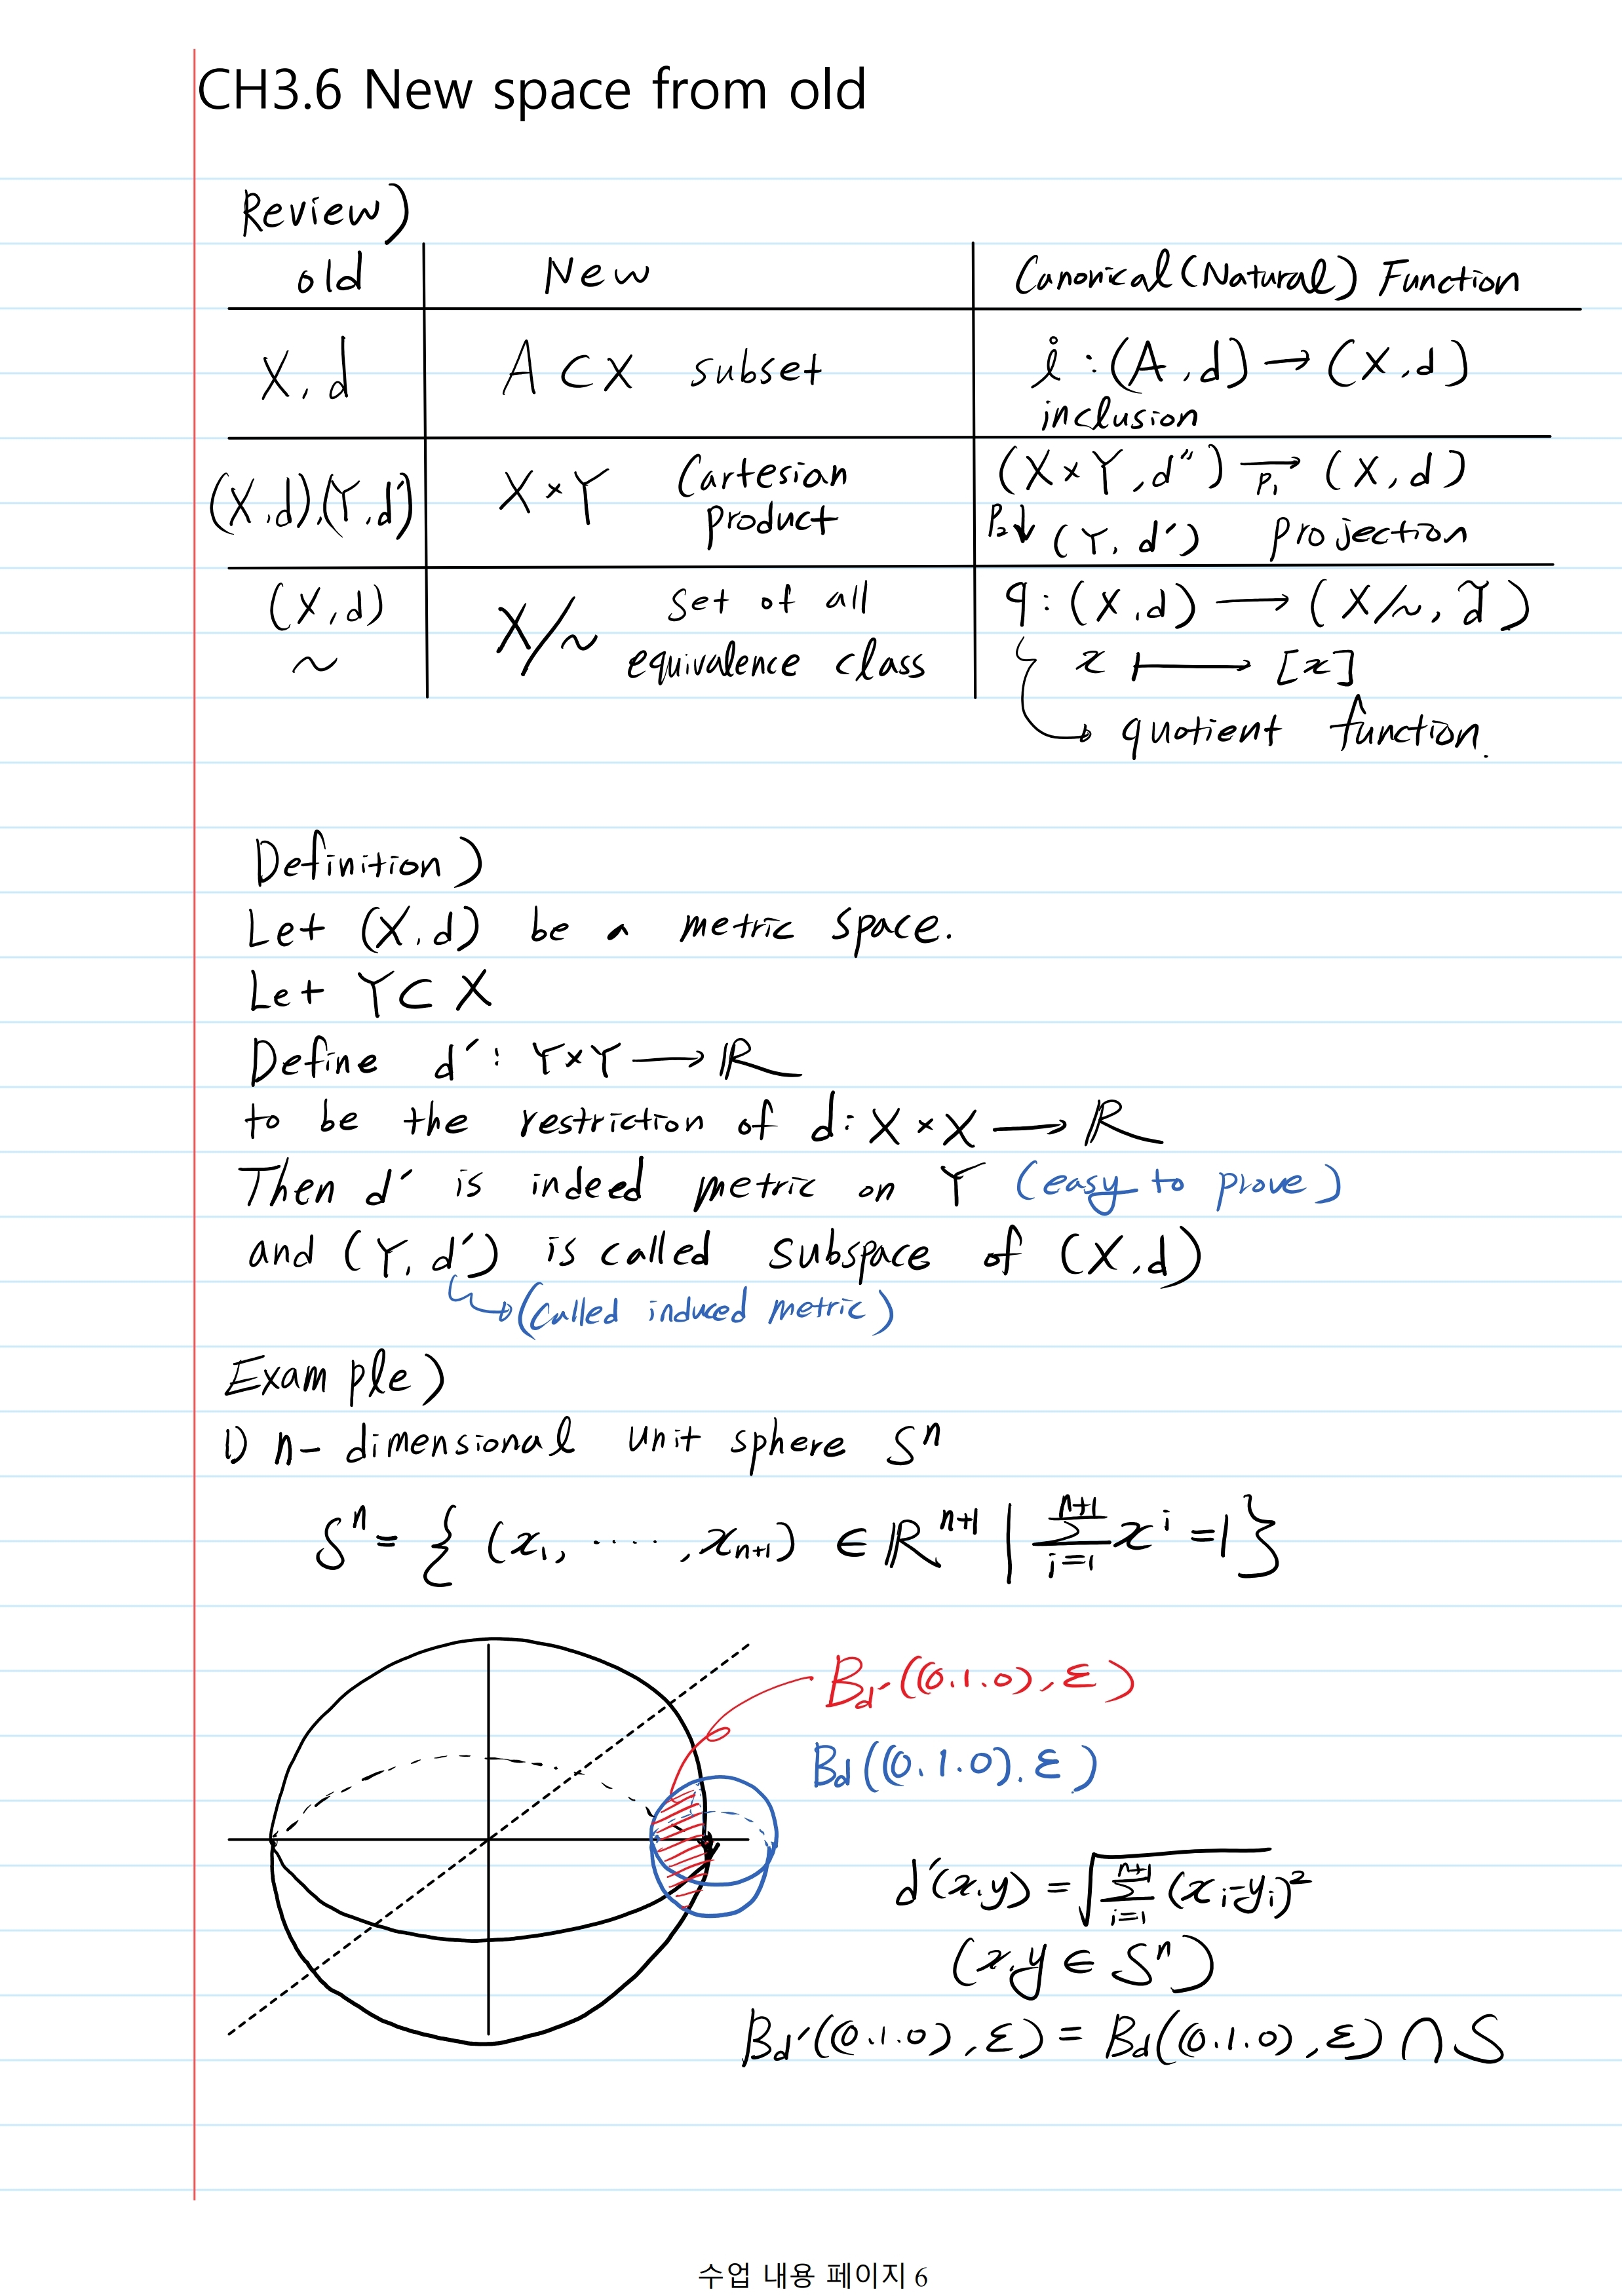 CH3.6 New space from old
Review)
old New Canonical(Natural) Function
X, d A ⊂ X subset i : (A, d) → (X, d)
inclusion
(X, d), (Y, d') X × Y Cartesian product (X × Y, d'') →p₁ (X, d)
p₂↓ (Y, d') projection
(X, d) ~ X/~ set of all equivalence class q : (X, d) → (X/~, d̃)
x ↦ [x]
quotient function.
Definition)
Let (X, d) be a metric space.
Let Y ⊂ X
Define d' : Y×Y → ℝ
to be the restriction of d : X × X → ℝ
Then d' is indeed metric on Y (easy to prove)
and (Y, d') is called subspace of (X, d)
(called induced metric)
Example)
1) n- dimensional unit sphere Sⁿ
Sⁿ = { (x₁, ·····, xₙ₊₁) ∈ ℝⁿ⁺¹ | Σ_{i=1}^{n+1} xⁱ = 1 }
B_d'((0.1.0), ε)
B_d((0.1.0). ε)
d'(x.y) = √Σ_{i=1}^{n+1} (xᵢ-yᵢ)²
(x.y ∈ Sⁿ)
B_d'((0.1.0), ε) = B_d((0.1.0), ε) ∩ S
수업 내용 페이지 6